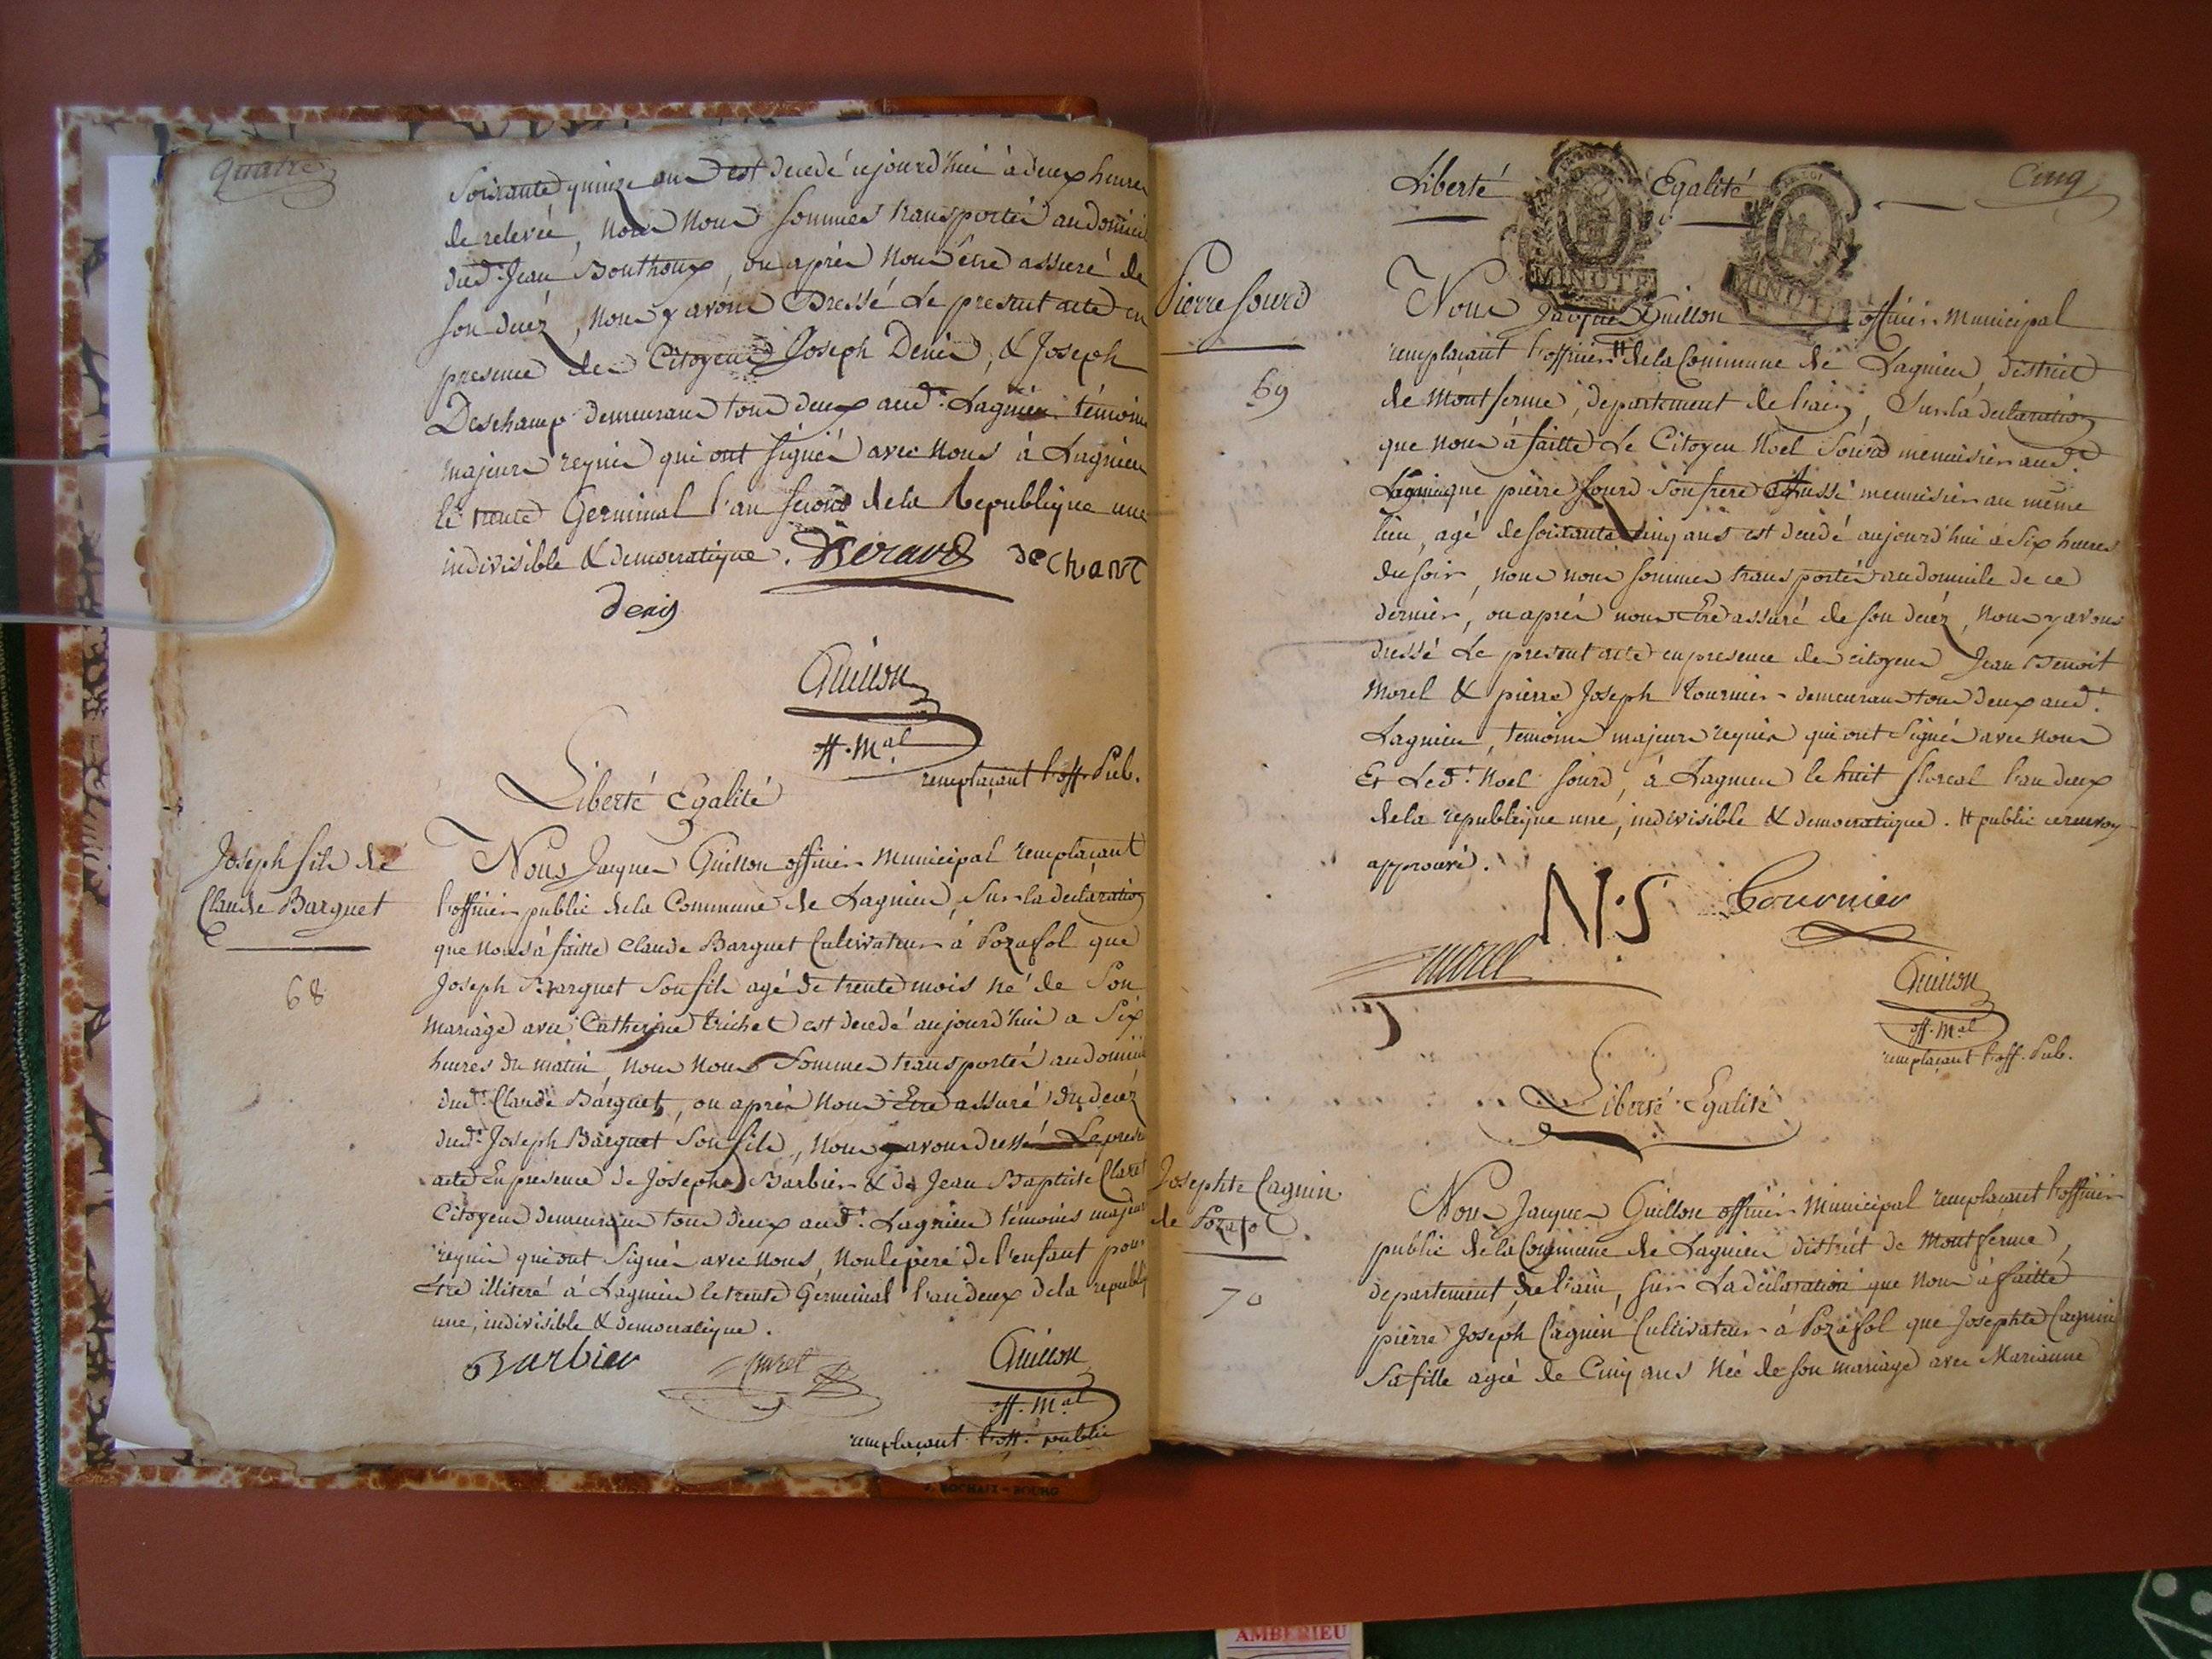 quatre
Soixante quinze ans est decedé cejourd'hui à deux heures
de relevée, nous nous sommes transportés au domicile
dud. Jean Bouthoux, ou après nous être assuré de
son decéz, nous y avons Dressé Le present acte en
presence des Citoyens Joseph Denis, & Joseph
Deschamp demeurans tous deux aud. Lagnieu témoins
majeurs requis qui ont signés avec nous à Lagnieu
le trente Germinal l'an second de la Republique une
indivisible & democratique. dechant
denis
Guillon
off. Mal
remplaçant l'off. Pub.
Liberté Egalité
Joseph fils de
Claude Barquet
68
Nous Jacques Guillon officier Municipal remplaçant
l'officier public de la Commune de Lagnieu, Sur la declaration
que nous à faitte Claude Barquet Cultivateur à Pozafol que
Joseph Barquet son fils agé de trente mois né de son
mariage avec Catherine trichet est decedé aujourd'hui a Six
heures du matin, nous nous sommes transportés au domicile
dud. Claude Barquet, ou après nous Etre assuré du decéz
dud. Joseph Barquet son fils, nous y avons dressé Le present
acte En presence de Joseph Barbier & de Jean Baptiste Claret
Citoyens demeurans tous deux aud. Lagnieu témoins majeurs
requis qui ont signés avec nous, non le pere de l'enfant pour
être illiteré à Lagnieu le trente Germinal l'an deux de la republique
une, indivisible & democratique.
Barbier Claret Guillon
off. Mal
remplaçant l'off. public
J. ROCHAIX - BOURG
Liberté Egalité Cinq
MINUTE MINUTE
Pierre Sourd
69
Nous Jacques Guillon officier Municipal
remplaçant l'officier # de la Commune de Lagnieu, district
de Montferme, departement de l'ain, Sur la declaration
que nous à faitte Le Citoyen Noel Sourd menuisier aud.
Lagnieu que pierre Sourd son frere aussi menuisier au même
lieu, agé de soixante cinq ans est decedé aujourd'hui à Six heures
du soir, nous nous sommes transportés au domicile de ce
dernier, ou après nous Etre assuré de son decéz, nous y avons
dressé Le present acte en presence des citoyens Jean Benoit
Morel & pierre Joseph tournier demeurans tous deux aud.
Lagnieu, temoins majeurs requis qui ont Signés avec nous
Et Led. Noel Sourd, à Lagnieu le huit floreal l'an deux
de la republique une, indivisible & democratique. # public ce renvoy
approuvé.
N.S tournier
morel
Guillon
off. Mal
remplaçant l'off. Pub.
Liberté Egalité
Josephte Cagnin
de Pozafol
70
Nous Jacques Guillon officier Municipal remplaçant l'officier
public de la Commune de Lagnieu district de Montferme,
departement de l'ain, sur La declaration que nous à faitte
pierre Joseph Cagnin Cultivateur à Pozafol que Josephte Cagnin
Sa fille agée de Cinq ans née de son mariage avec Marianne
AMBERIEU